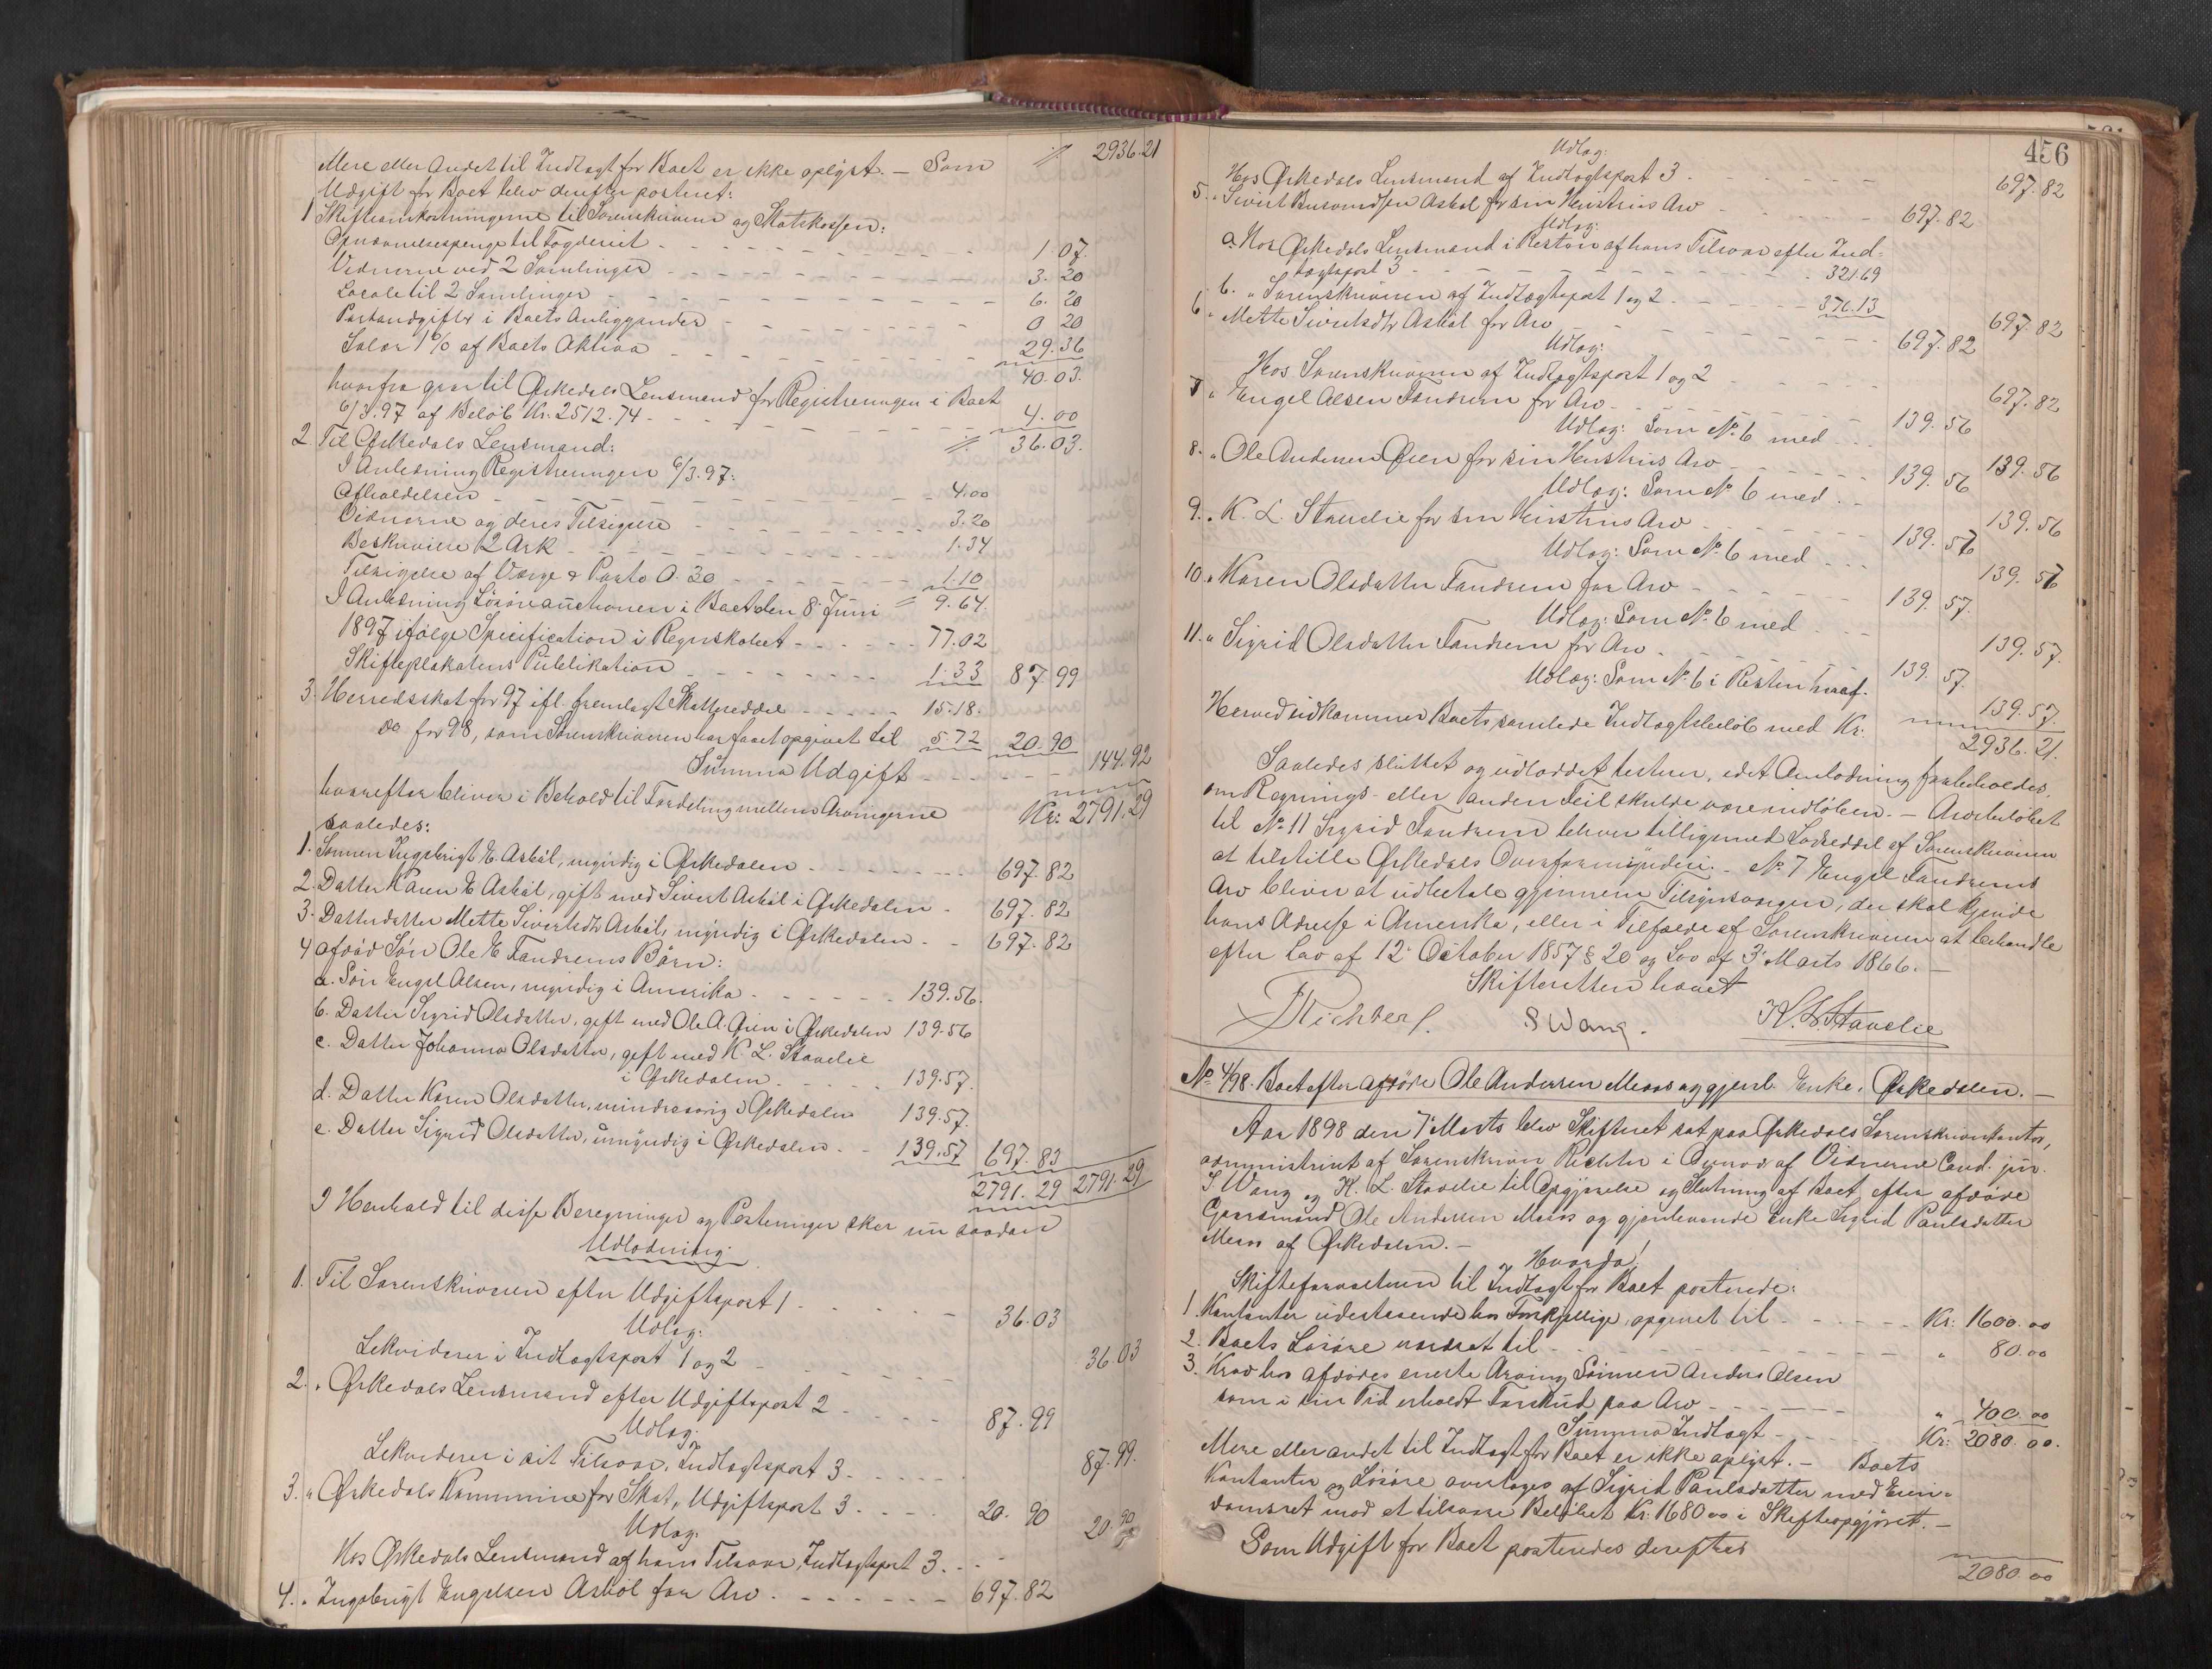 Mere eller Andet til Indtægt for Boet er ikke oplyst. — Som // 2936.21
Udgift for Boet blev derefter posteret:
1 Skifteomkostningerne til Sorenskriveren og Statskassen:
Opnævnelsespenge til Fogderiet 1.07.
Vidnerne ved 2 Samlinger 3.20
Locale til 2 Samlinger 6.20
Portoudgifter i Boets Anliggender 0 20
Salær 1% af Boets Aktiva 29.36
40.03.
hvorfra gaar til Ørkedals Lensmand for Registreringen i Boet
6/3.97 af Beløb Kr. 2512.74 4.00
// 36.03.
2. Til Ørkedals Lensmand:
I Anledning Registreringen 6/3.97:
Afholdelsen 4.00
Vidnerne og deres Tilsigelse 3.20
Beskrivelse 2 Ark 1.34
Tilsigelse af Værge & Porto 0.30 1.10
// 9.64.
I Anledning Løsøreauctionen i Boet den 8de Juni
1897 ifølge Specification i Regnskabet 77.02
Skifteplakatens Publikation 1.33 87.99
3. Herredsskat for 97 ifl. fremlagt Skatteseddel 15.18.
do for 98, som Sorenskriveren har faaet opgivet til 5.72 20.90
Summa Udgift 144.92
hvorefter bliver i Behold til Fordeling mellem Arvingerne Kr: 2791.29
saaledes:
1. Sønnen Ingebrigt E. Asbøl, myndig i Ørkedalen 697.82
2. Datter Karen E Asbøl, gift med Sivert Asbøl i Ørkedalen 697.82
3. Datterdatter Mette Sivertsdtr Asbøl, myndig i Ørkedalen 697.82
4 afdød Søn Ole E Fandrems Børn:
a. Søn Engel Olsen, myndig i Amerika 139.56.
b. Datter Sigrid Olsdatter, gift med Ole A. Øien i Ørkedalen 139.56
c. Datter Johanna Olsdatter, gift med K. L. Stavelie
i Ørkedalen 139.57.
d. Datter Karen Olsdatter, mindreaarig i Ørkedalen 139.57.
e. Datter Sigrid Olsdatter, umyndig i Ørkedalen 139.57 697.83
2791.29 2791.29
I Henhold til disse Beregninger og Posteringer sker nu saadan
Udlodning:
1. Til Sorenskriveren efter Udgiftspost 1 36.03
Udlæg:
Lekviderer i Indtægtspost 1 og 2 36.03
2. " Ørkedals Lensmand efter Udgiftspost 2 87.99
Udlæg:
Lekviderer i sit Tilsvar, Indtægtspost 3. 87.99.
3. " Ørkedals Kommune for Skat, Udgiftspost 3. 20.90
Udlæg:
Hos Ørkedals Lensmand af hans Tilsvar, Indtægtspost 3. 20.90
4. " Ingebrigt Engelsen Asbøl for Arv. 697.82
456
Udlæg:
Hos Ørkedals Lensmand af Indtægtspost 3. 697.82
5. " Sivert Asbøl for sin Hustrus Arv 697.82
Udlæg:
a. Hos Ørkedals Lensmand i Resten af hans Tilsvar efter Ind-
tægtspost 3 321.69
b. " Sorenskriveren af Indtægtspost 1 og 2 376.13
697.82
6 " Mette Sivertsdtr Asbøl for Arv 697.82
Udlæg:
Hos Sorenskriveren af Indtægtspost 1 og 2 697.82
7 " Engel Olsen Fandrem for Arv 139.56
Udlæg: Som No. 6 med 139.56
8. " Ole Andersen Øien for sin Hustrus Arv 139.56
Udlæg: Som No 6 med 139.56
9. " K. L. Stavelie for sin Hustrus Arv 139.57
Udlæg: Som No. 6 med 139.57
10. " Karen Olsdatter Fandrem for Arv 139.57.
Udlæg: Som No. 6 med 139.57.
11. " Sigrid Olsdatter Fandrem for Arv 139.57.
Udlæg: Som No. 6 i Resten heraf. 139.57.
Herved udkommer Boets samlede Indtægtsbeløb med Kr: 2936.21.
Saaledes sluttet og udloddet testeres, idet Anlodning forbeholdes,
om Regnings- eller anden Feil skulde være indløben. — Arvebeløbet
til No. 11 Sigrid Fandrem bliver tilligemed Lodseddel af Sorenskriveren
at tilstille Ørkedals Overformynderi. — No. 7 Engel Fandrems
Arv bliver at udbetale gjennem Tilsynsværgen, der skal kjende
hans Adresse i Amerika, eller i Tilfælde af Sorenskriveren at behandle
efter Lov af 12te October 1857 § 20 og Lov af 3die Marts 1866. —
Skifteretten hævet
Richter S Wang. K. L. Stavelie
No 4/98. Boet efter afdøde Ole Andersen Meoos og gjenl. Enke, Ørkedalen. —
Aar 1898 den 7de Marts blev Skifteret sat paa Ørkedals Sorenskriverkontor,
administreret af Sorenskriver Richter i Overvær af Vidnerne Cand. jur.
S. Wang og K. L. Stavelie til Opgjørelse og Slutning af Boet efter afdøde
Gaardmand Ole Andersen Meoos og gjenlevende Enke Sigrid Paulsdatter
Meoos af Ørkedalen. —
Hvorda!
Skifteforvalteren til Indtægt for Boet posterede:
1. Kontanter udestaaende hos Forskjellige, opgivet til Kr: 1600.00
2. Boets Løsøre vurderet til " 80.00
3. Krav hos afdødes eneste Arving Sønnen Anders Olsen
som i sin Tid erholdt Forskud paa Arv " 400.00
Summa Indtægt Kr: 2080.00.
Mere eller andet til Indtægt for Boet er ikke oplyst. — Boets
Kontanter og Løsøre overtages af Sigrid Paulsdatter med Eien-
domsret mod at tilsvare Beløbet Kr: 1680.00 i Skifteopgjøret. —
Som Udgift for Boet posteredes derefter
2080.00